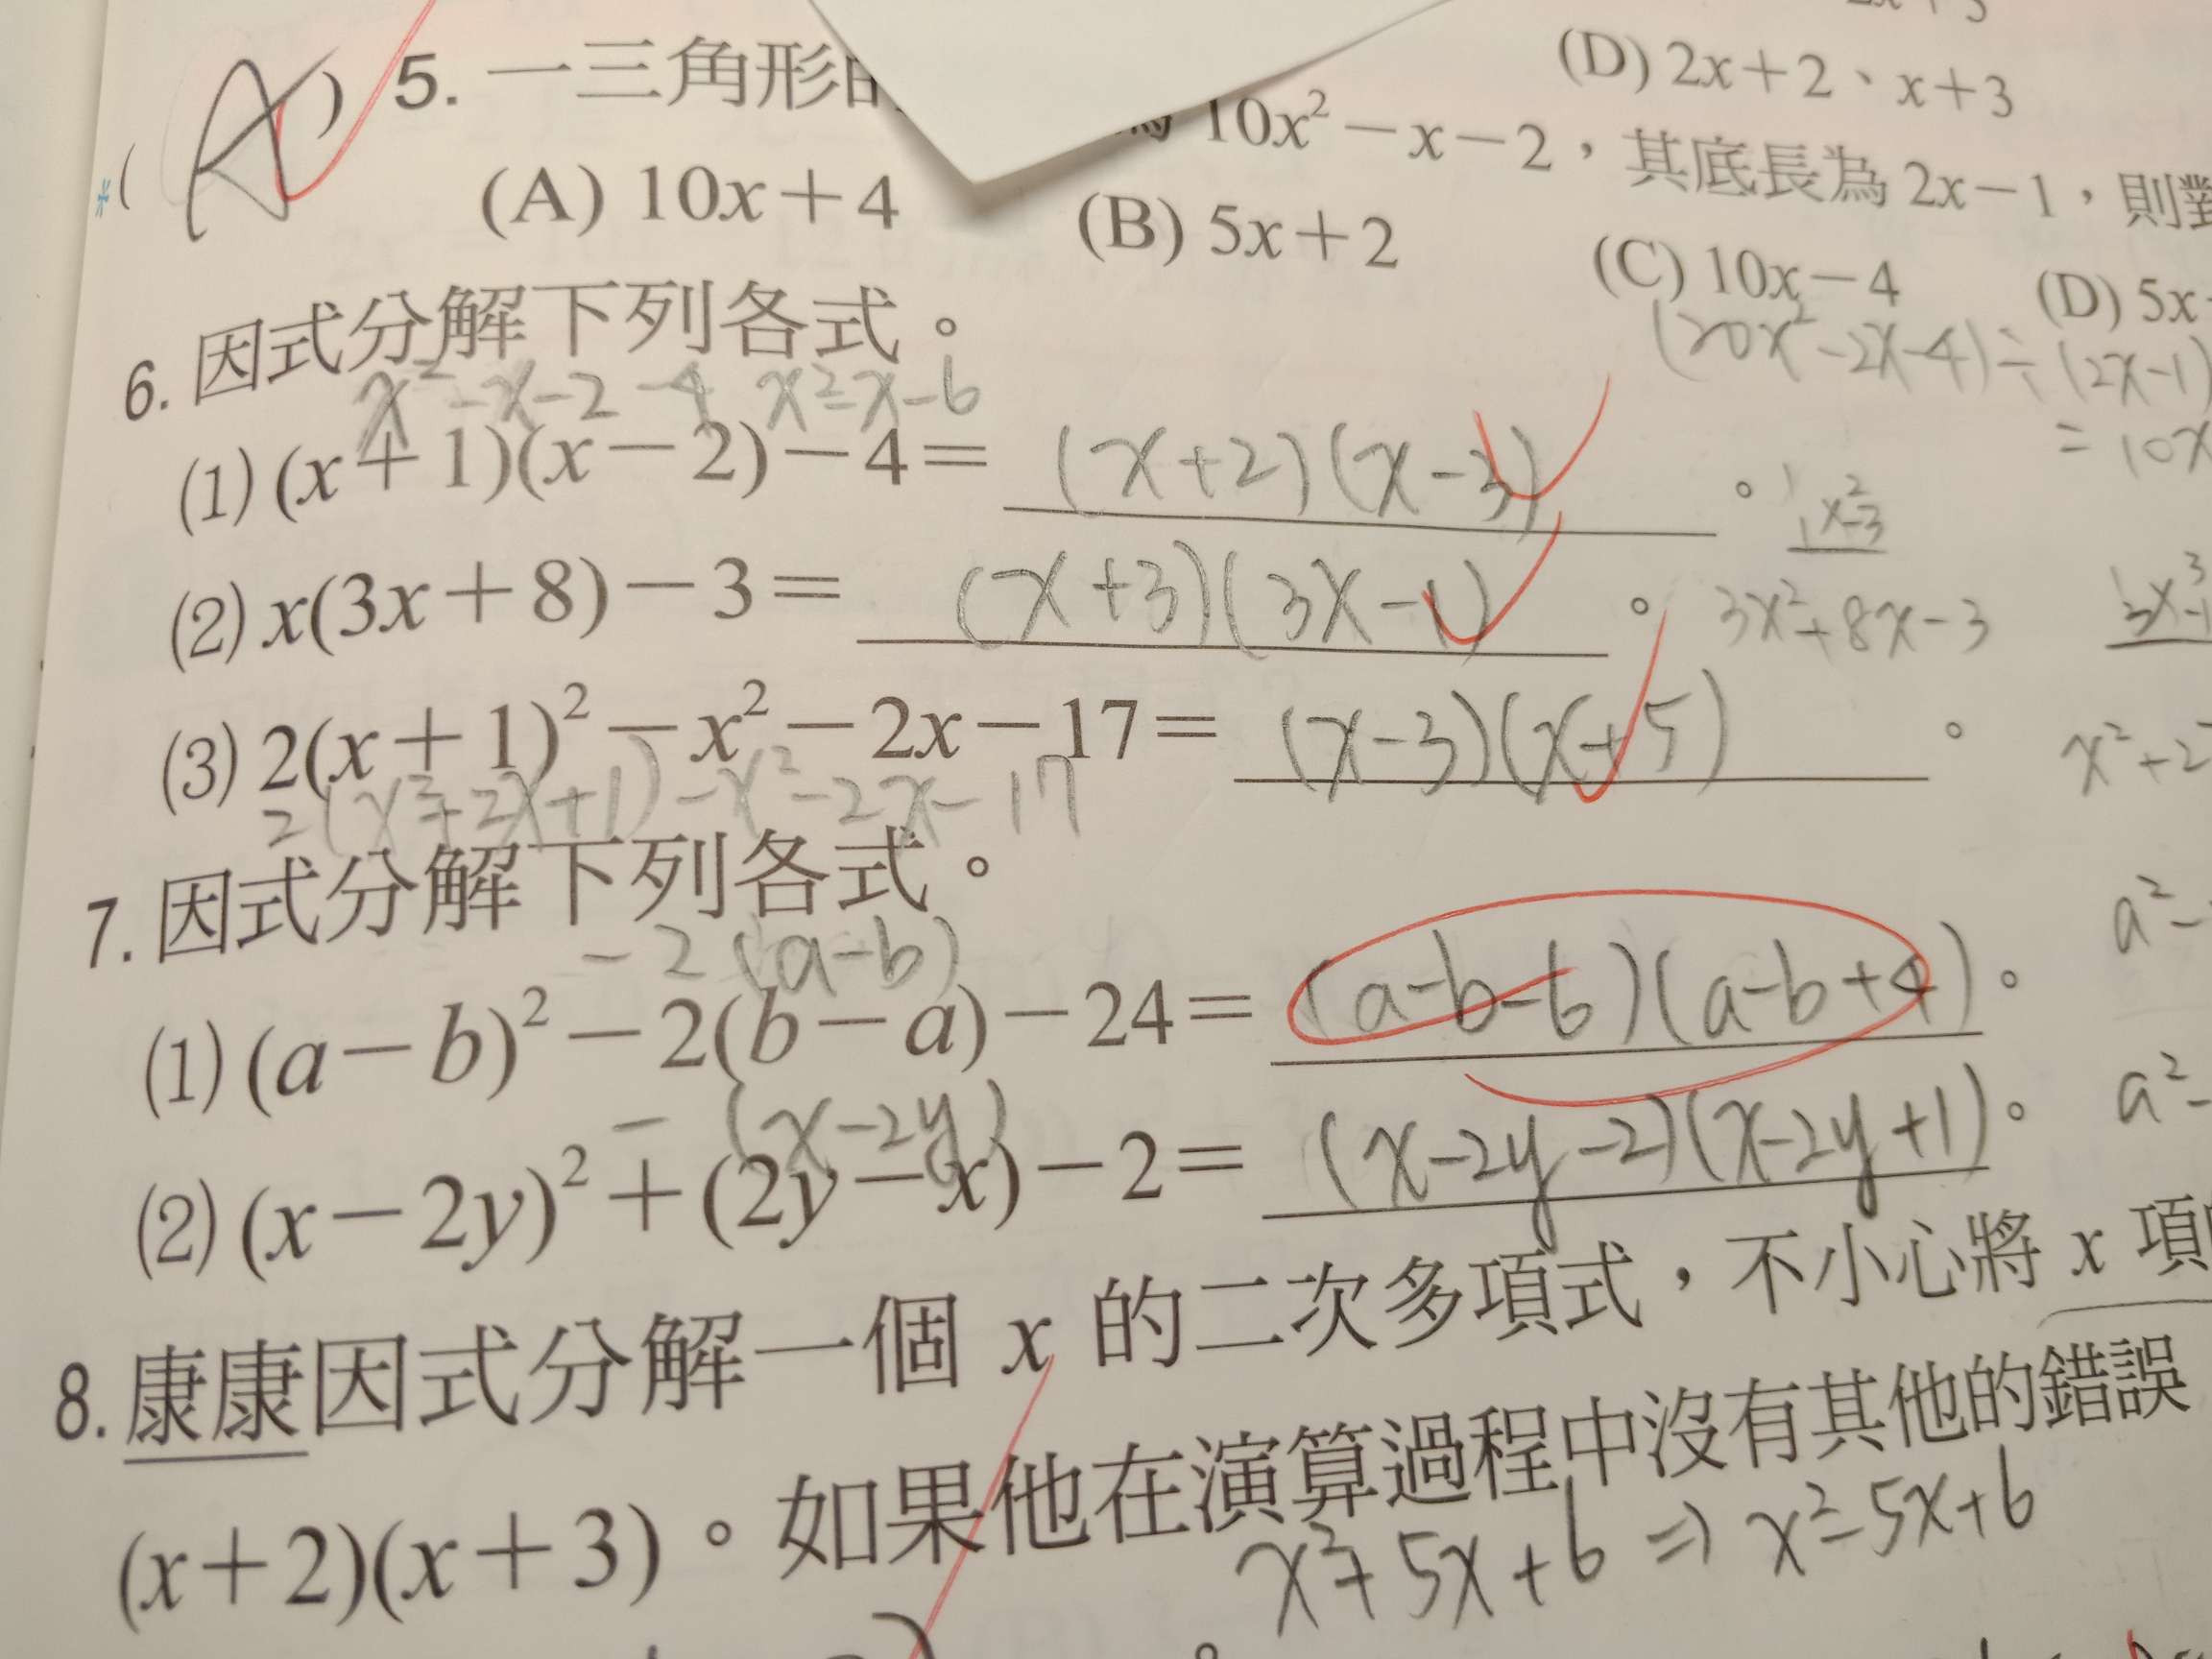 (D) 2x+2、x+3
(A) 5. 一三角形 10x²-x-2，其底長為 2x-1，則
(A) 10x+4 (B) 5x+2 (C) 10x-4 (D) 5x
(20x²-2x-4)÷(2x-1)
= 10x
6. 因式分解下列各式。
x²-x-2-4 x²-x-6
(1) (x+1)(x-2)-4= (x+2)(x-3)。
(2) x(3x+8)-3= (x+3)(3x-1)。 3x²+8x-3
(3) 2(x+1)²-x²-2x-17= (x-3)(x+5)。 x²+2
2(x²+2x+1)-x²-2x-17
7. 因式分解下列各式。
-2(a-b)
(1) (a-b)²-2(b-a)-24= (a-b-6)(a-b+4)。 a²-
-(x-2y)
(2) (x-2y)²+(2y-x)-2= (x-2y-2)(x-2y+1)。 a²-
8. 康康因式分解一個 x 的二次多項式，不小心將 x 項
(x+2)(x+3)。如果他在演算過程中沒有其他的錯誤
x²+5x+6 ⇒ x²-5x+6